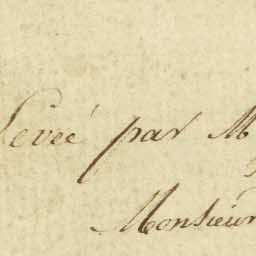 Levée par M
Monsieur